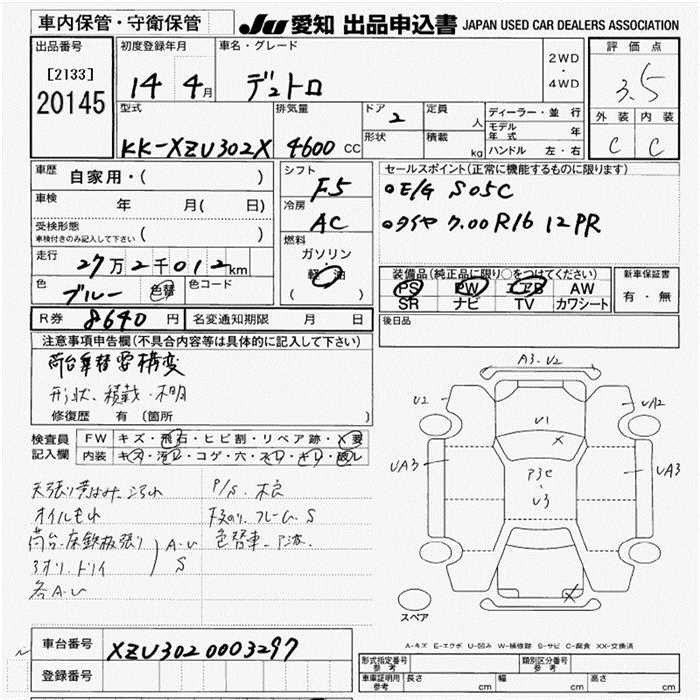 車内保管・守衛保管
JU 愛知 出品申込書 JAPAN USED CAR DEALERS ASSOCIATION
出品番号
[2133]
20145
初度登録年月
14 4月
車名・グレード
デュトロ
2WD
・
4WD
評価点
3.5
外装 内装
C C
型式
KK-XZU302X
排気量
4600 CC
ドア
2
定員
人
形状
積載
kg
ディーラー・並行
モデル年式 年
ハンドル 左・右
車歴
自家用・( )
車検
年 月( 日)
受検形態
車検付きのみ記入して下さい ( )
走行
27万2千012km
色
ブルー
色替
色コード
シフト
F5
冷房
AC
燃料
ガソリン
軽油
( )
セールスポイント(正常に機能するものに限ります)
E/G S05C
タイヤ 7.00R16 12PR
装備品(純正品に限り○をつけてください)
PS PW エアB AW
SR ナビ TV カワシート
新車保証書
有・無
R券 8640円
名変通知期限 月 日
後日品
注意事項申告欄(不具合内容等は具体的に記入して下さい)
荷台乗替 要構変
形状、積載、
修復歴 有(箇所 )
検査員
記入欄
FW キズ・飛石・ヒビ割・リペア跡・X要
内装 キズ・汚レ・コゲ・穴・スレ・キレ・破レ
オイルもれ
荷台、床鉄板張り
A・U
S
各A・U
P/S.
フレーム S
色替車
A3.U2
U2
UA2
U1
X
UA3
P3C
U3
UA3
X
スペア
A-キズ E-エクボ U-凹み W-補修跡 S-サビ C-腐食 XX-交換済
車台番号
XZU3020003297
登録番号
形式指定番号
参考
類別区分番号
参考
車庫証明用
参考
長さ cm
幅 cm
高さ cm